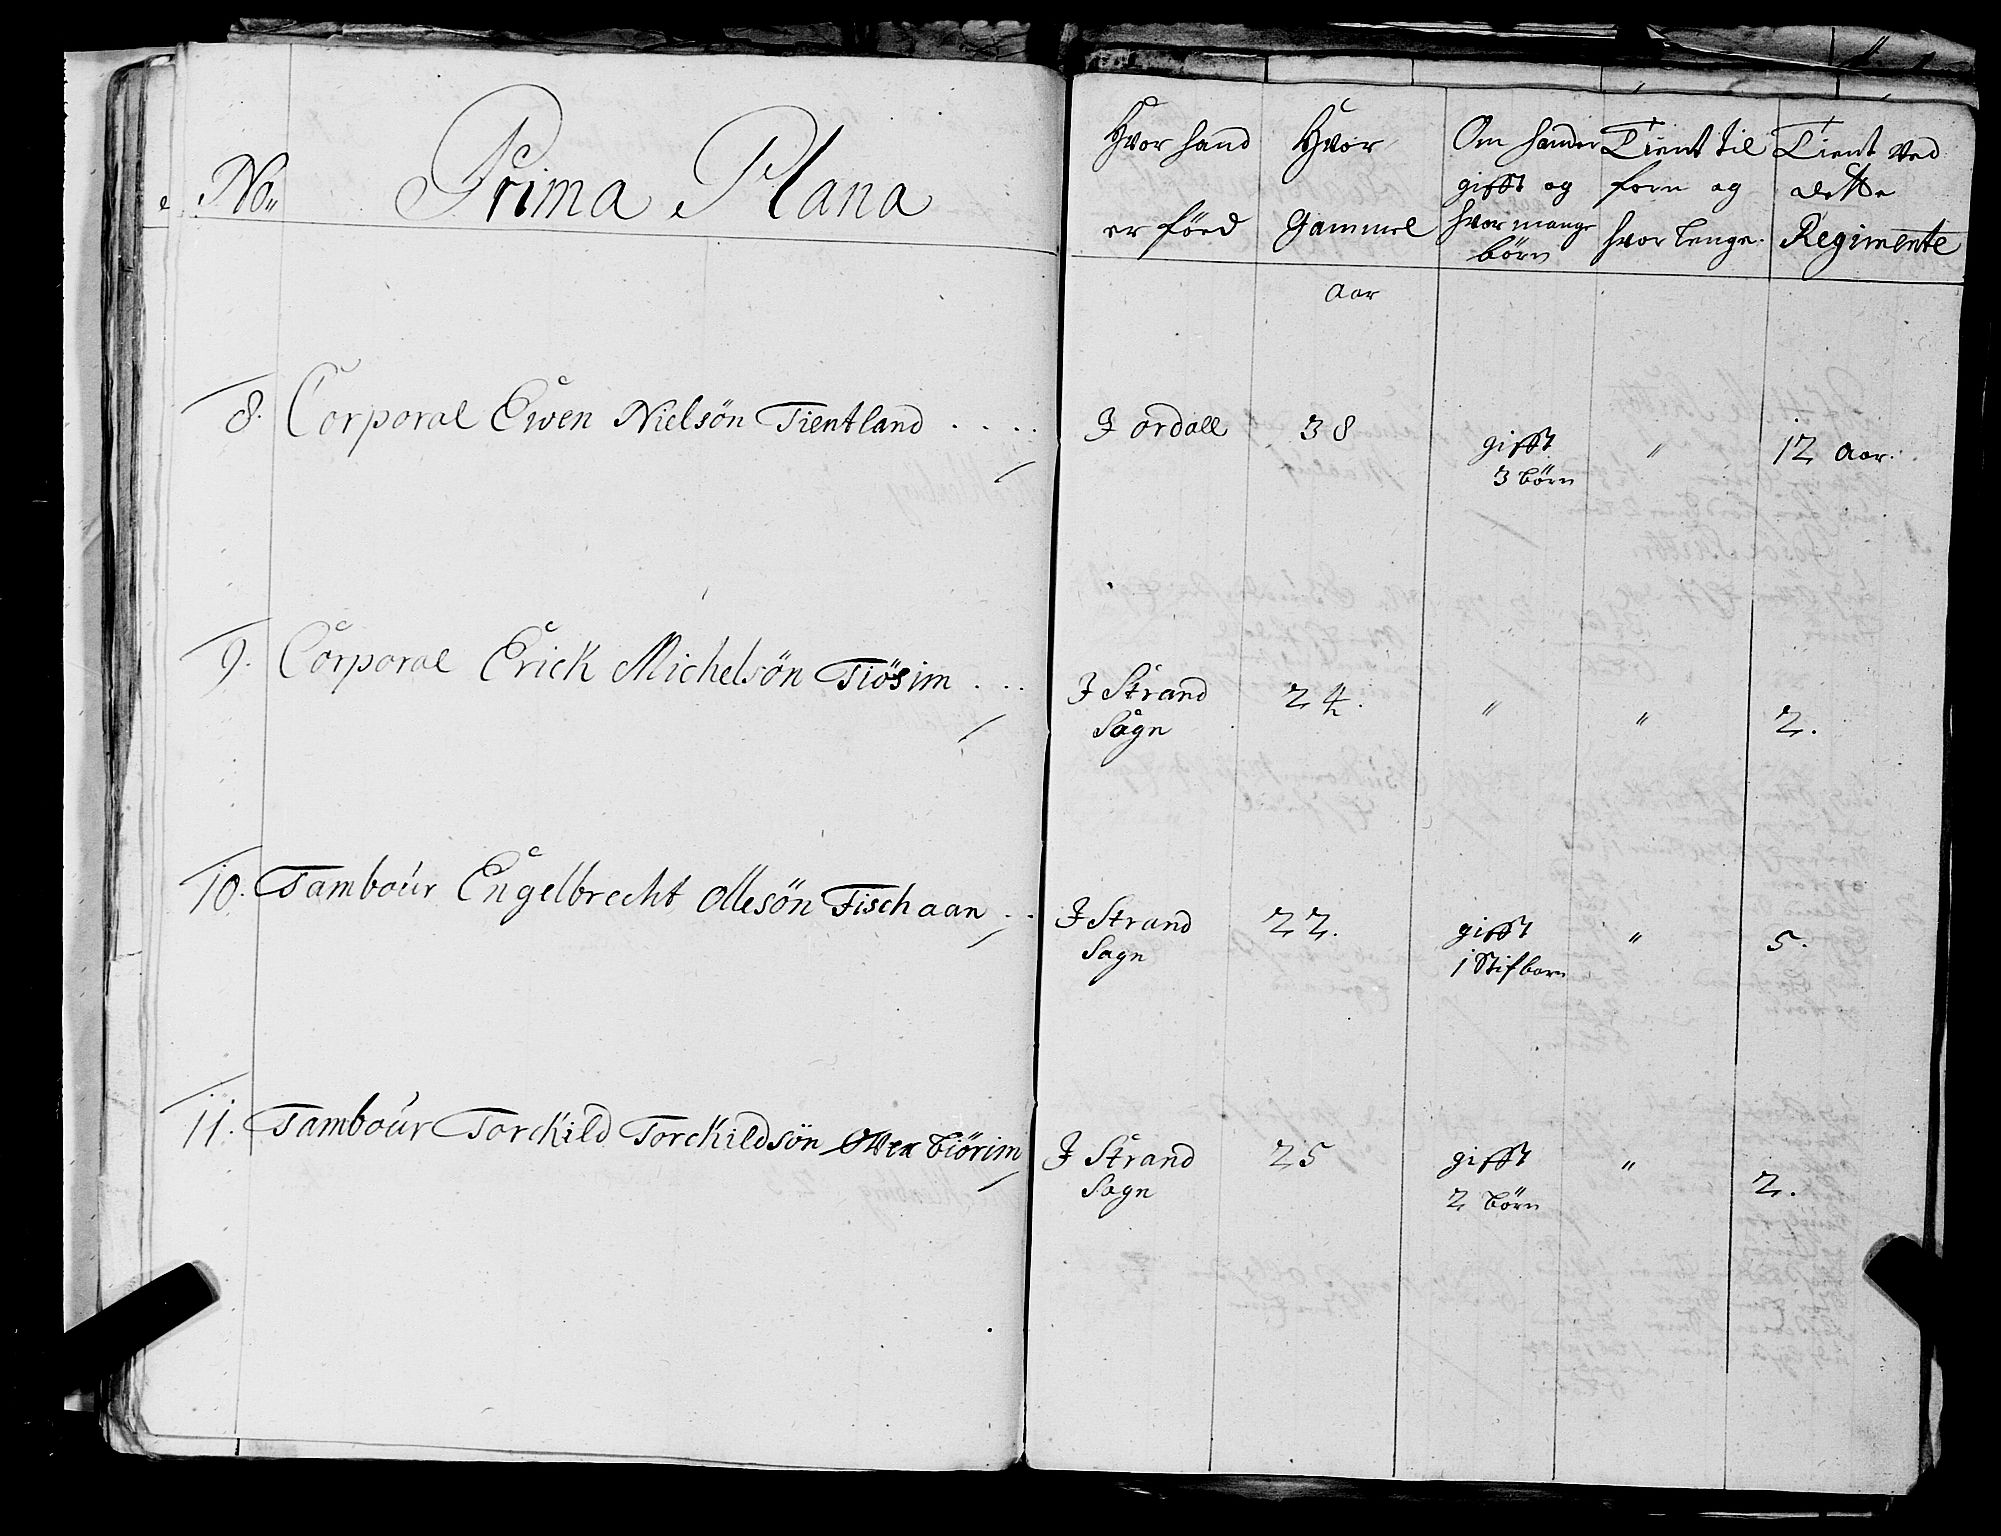 No. Prima Plana
Hvor hand er föed
Hvor Gammel
Om hand er gifft og hvor mange börn
Tient til forn og hvor lenge.
Tient ved dette Regimente
Aar
8. Corporal Ewen Nielsön Tientland . . . .
J ordall 38 gifft 3 börn " 12 Aar.
9. Corporal Erick Michelsön Tiösim . . .
J Strand Sogn 24. " " 2.
10. Tambour Engelbrecht Ollesön Fischaan . .
J Strand Sogn 22. gifft 1 Stifbarn " 5.
11. Tambour Torckild Torckildsön Öwer Tiörim
J Strand Sogn 25 gifft 2 börn " 2.